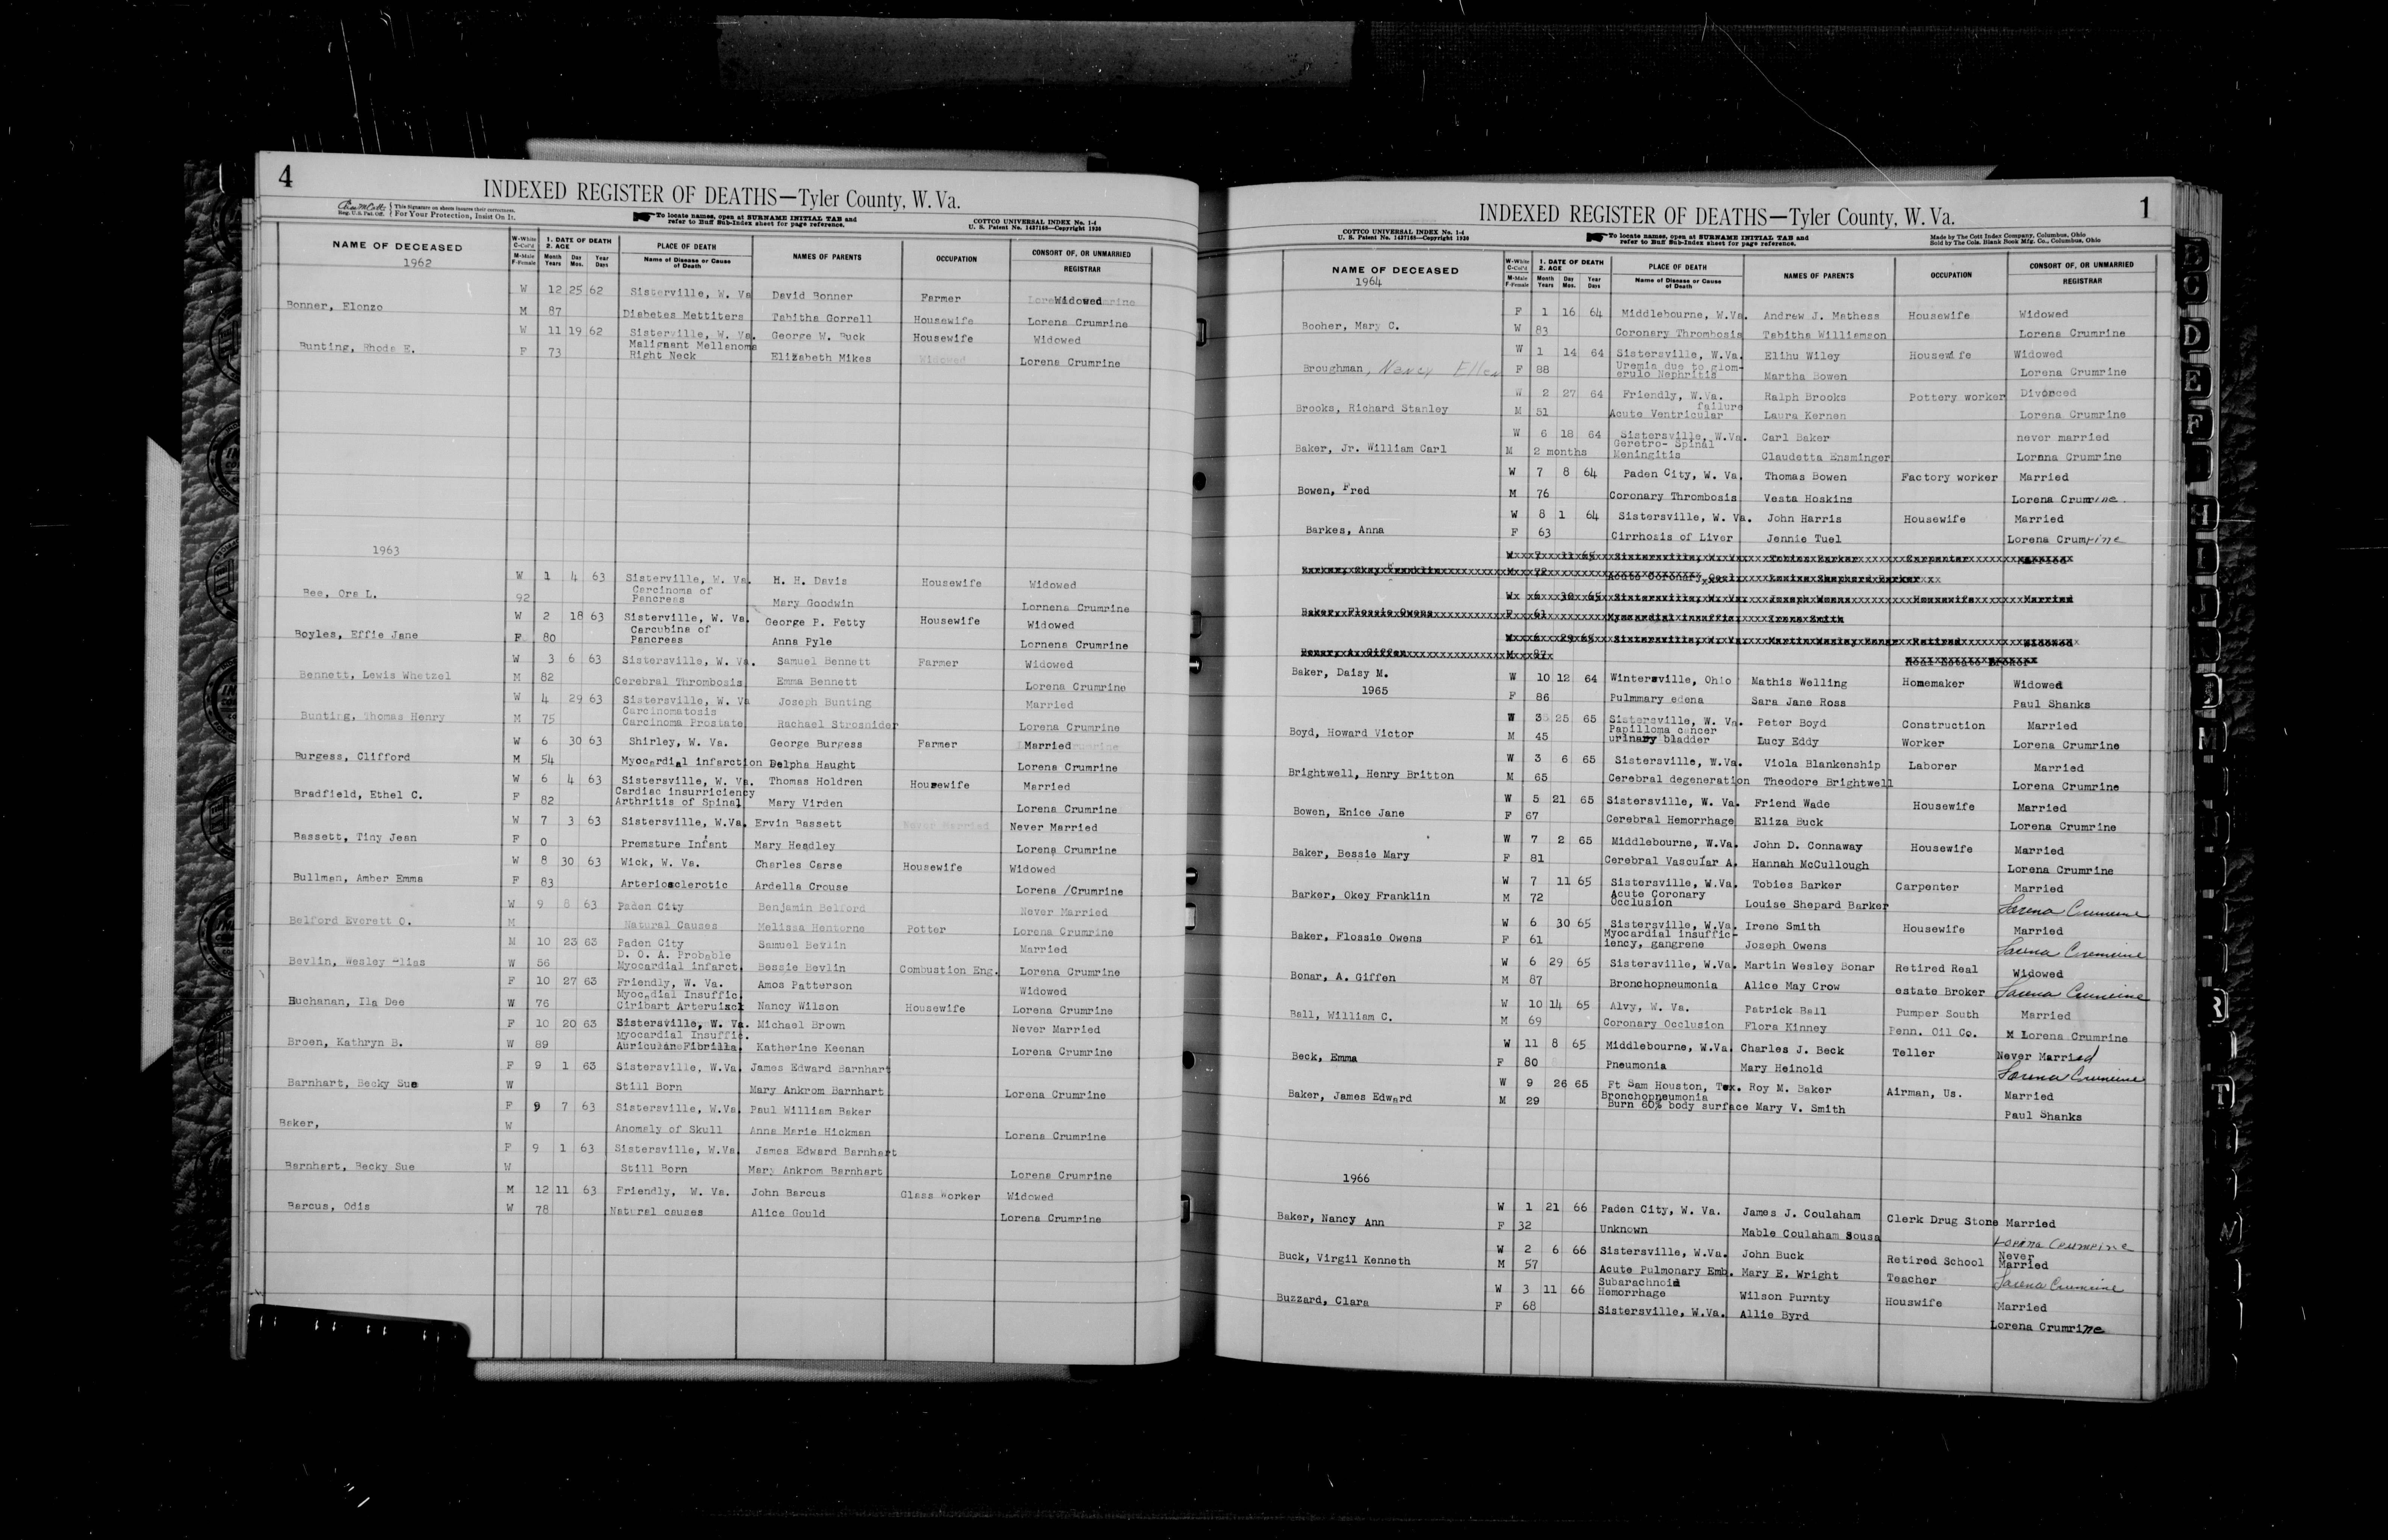 4
INDEXED REGISTER OF DEATHS—Tyler County, W. Va.
Reg. U.S. Pat. Off. This Signature on sheets insures their correctness. For Your Protection, Insist On It.
To locate names, open at SURNAME INITIAL TAB and refer to Buff Sub-Index sheet for page reference.
COTTCO UNIVERSAL INDEX No. 1-4
U. S. Patent No. 1437165—Copyright 1930
NAME OF DECEASED W-White C-Col'd M-Male F-Female 1. DATE OF DEATH 2. AGE Month Years Day Mos. Year Days PLACE OF DEATH Name of Disease or Cause of Death NAMES OF PARENTS OCCUPATION CONSORT OF, OR UNMARRIED REGISTRAR
1962
W 12 25 62 Sisterville, W. Va David Bonner Farmer Widowed
Bonner, Elonzo M 87 Diabetes Mettiters Tabitha Gorrell Housewife Lorena Crumrine
W 11 19 62 Sisterville, W. Va. George W. Buck Housewife Widowed
Bunting, Rhoda E. F 73 Malignant Mellanoma Right Neck Elizabeth Mikes Widowed Lorena Crumrine
1963
W 1 4 63 Sisterville, W. Va. H. H. Davis Housewife Widowed
Bee, Ora L. 92 Carcinoma of Pancreas Mary Goodwin Lornena Crumrine
W 2 18 63 Sisterville, W. Va. George P. Fetty Housewife Widowed
Boyles, Effie Jane F 80 Carcubina of Pancreas Anna Pyle Lornena Crumrine
W 3 6 63 Sistersville, W. Va. Samuel Bennett Farmer Widowed
Bennett, Lewis Whetzel M 82 Cerebral Thrombosis Emma Bennett Lorena Crumrine
W 4 29 63 Sistersville, W. Va Joseph Bunting Married
Bunting, Thomas Henry M 75 Carcinomatosis Carcinoma Prostate Rachael Strosnider Lorena Crumrine
W 6 30 63 Shirley, W. Va. George Burgess Farmer Married
Burgess, Clifford M 54 Myocardial infarction Delpha Haught Lorena Crumrine
W 6 4 63 Sistersville, W. Va. Thomas Holdren Housewife Married
Bradfield, Ethel C. F 82 Cardiac insurriciency Arthritis of Spinal Mary Virden Lorena Crumrine
W 7 3 63 Sistersville, W.Va. Ervin Bassett Never Married Never Married
Bassett, Tiny Jean F 0 Premature Infant Mary Headley Lorena Crumrine
W 8 30 63 Wick, W. Va. Charles Carse Housewife Widowed
Bullman, Amber Emma F 83 Arteriosclerotic Ardella Crouse Lorena /Crumrine
W 9 8 63 Paden City Benjamin Belford Never Married
Belford Everett O. M Natural Causes Melissa Hentorne Potter Lorena Crumrine
M 10 23 63 Paden City Samuel Bevlin Married
Bevlin, Wesley Elias W 56 D. O. A. Probable Myocardial infarct. Bessie Bevlin Combustion Eng. Lorena Crumrine
F 10 27 63 Friendly, W. Va. Amos Patterson Widowed
Buchanan, Ila Dee W 76 Myocadial Insuffic. Ciribart Arteruiscl Nancy Wilson Housewife Lorena Crumrine
F 10 20 63 Sistersville, W. Va. Michael Brown Never Married
Broen, Kathryn B. W 89 Myocardial Insuffic. Fibrilla. Katherine Keenan Lorena Crumrine
F 9 1 63 Sistersville, W.Va. James Edward Barnhart
Barnhart, Becky Sue W Still Born Mary Ankrom Barnhart Lorena Crumrine
F 9 7 63 Sistersville, W.Va. Paul William Baker
Baker, W Anomaly of Skull Anna Marie Hickman Lorena Crumrine
F 9 1 63 Sistersville, W.Va. James Edward Barnhart
Barnhart, Becky Sue W Still Born Mary Ankrom Barnhart Lorena Crumrine
M 12 11 63 Friendly, W. Va. John Barcus Glass Worker Widowed
Barcus, Odis W 78 Natural causes Alice Gould Lorena Crumrine
1
INDEXED REGISTER OF DEATHS—Tyler County, W. Va.
COTTCO UNIVERSAL INDEX No. 1-4
U. S. Patent No. 1437165—Copyright 1930
To locate names, open at SURNAME INITIAL TAB and refer to Buff Sub-Index sheet for page reference.
Made by The Cott Index Company, Columbus, Ohio
Sold by The Cols. Blank Book Mfg. Co., Columbus, Ohio
NAME OF DECEASED W-White C-Col'd M-Male F-Female 1. DATE OF DEATH 2. AGE Month Years Day Mos. Year Days PLACE OF DEATH Name of Disease or Cause of Death NAMES OF PARENTS OCCUPATION CONSORT OF, OR UNMARRIED REGISTRAR
1964
F 1 16 64 Middlebourne, W.Va. Andrew J. Mathess Housewife Widowed
Booher, Mary C. W 83 Coronary Thrombosis Tabitha Williamson Lorena Crumrine
W 1 14 64 Sistersville, W.Va. Elihu Wiley Housewife Widowed
Broughman, Nancy Ellen F 88 Uremia due to glomerulo Nephritis Martha Bowen Lorena Crumrine
W 2 27 64 Friendly, W.Va. Ralph Brooks Pottery worker Divorced
Brooks, Richard Stanley M 51 Acute Ventricular failure Laura Kernen Lorena Crumrine
W 6 18 64 Sistersville, W.Va. Carl Baker never married
Baker, Jr. William Carl M 2 months Ceretro- Spinal Meningitis Claudetta Ensminger Lorena Crumrine
W 7 8 64 Paden City, W. Va. Thomas Bowen Factory worker Married
Bowen, Fred M 76 Coronary Thrombosis Vesta Hoskins Lorena Crumrine
W 8 1 64 Sistersville, W. Va. John Harris Housewife Married
Barkes, Anna F 63 Cirrhosis of Liver Jennie Tuel Lorena Crumrine
W 7 11 65 Sistersville, W. Va Tobies Barker Carpenter Married
Barker, Okey Franklin M 72 Acute Coronary Occl Louise Shephard Barker
W 6 30 65 Sistersville, W. Va Joseph Owens Housewife Married
Baker, Flossie Owens F 61 Myocardial insuffic. Irene Smith
W 6 29 65 Sistersville, W. Va Martin Wesley Bonar Retired Widowed
Bonar, A. Giffen M 87 Real Estate Broker
Baker, Daisy M. W 10 12 64 Wintersville, Ohio Mathis Welling Homemaker Widowed
1965 F 86 Pulmmary edena Sara Jane Ross Paul Shanks
W 3 25 65 Sistersville, W. Va. Peter Boyd Construction Married
Boyd, Howard Victor M 45 Papilloma cancer urinary bladder Lucy Eddy Worker Lorena Crumrine
W 3 6 65 Sistersville, W.Va. Viola Blankenship Laborer Married
Brightwell, Henry Britton M 65 Cerebral degeneration Theodore Brightwell Lorena Crumrine
W 5 21 65 Sistersville, W. Va. Friend Wade Housewife Married
Bowen, Enice Jane F 67 Cerebral Hemorrhage Eliza Buck Lorena Crumrine
W 7 2 65 Middlebourne, W.Va. John D. Connaway Housewife Married
Baker, Bessie Mary F 81 Cerebral Vascular A. Hannah McCullough Lorena Crumrine
W 7 11 65 Sistersville, W.Va. Tobies Barker Carpenter Married
Barker, Okey Franklin M 72 Acute Coronary Occlusion Louise Shepard Barker Lorena Crumrine
W 6 30 65 Sistersville, W.Va. Irene Smith Housewife Married
Baker, Flossie Owens F 61 Myocardial insuffic-iency, gangrene Joseph Owens Lorena Crumrine
W 6 29 65 Sistersville, W.Va. Martin Wesley Bonar Retired Real Widowed
Bonar, A. Giffen M 87 Bronchopneumonia Alice May Crow estate Broker Lorena Crumrine
W 10 14 65 Alvy, W. Va. Patrick Ball Pumper South Married
Ball, William C. M 69 Coronary Occlusion Flora Kinney Penn. Oil Co. M Lorena Crumrine
W 11 8 65 Middlebourne, W.Va. Charles J. Beck Teller Never Married
Beck, Emma F 80 Pneumonia Mary Heinold Lorena Crumrine
W 9 26 65 Ft Sam Houston, Tex. Roy M. Baker Airman, Us. Married
Baker, James Edward M 29 Bronchopneumonia Burn 60% body surface Mary V. Smith Paul Shanks
1966
W 1 21 66 Paden City, W. Va. James J. Coulaham Clerk Drug Stone Married
Baker, Nancy Ann F 32 Unknown Mable Coulaham Sousa Lorena Crumrine
W 2 6 66 Sistersville, W.Va. John Buck Retired School Never Married
Buck, Virgil Kenneth M 57 Acute Pulmonary Emb. Mary E. Wright Teacher Lorena Crumrine
W 3 11 66 Subarachnoid Hemorrhage Wilson Purnty Houswife Married
Buzzard, Clara F 68 Sistersville, W.Va. Allie Byrd Lorena Crumrine